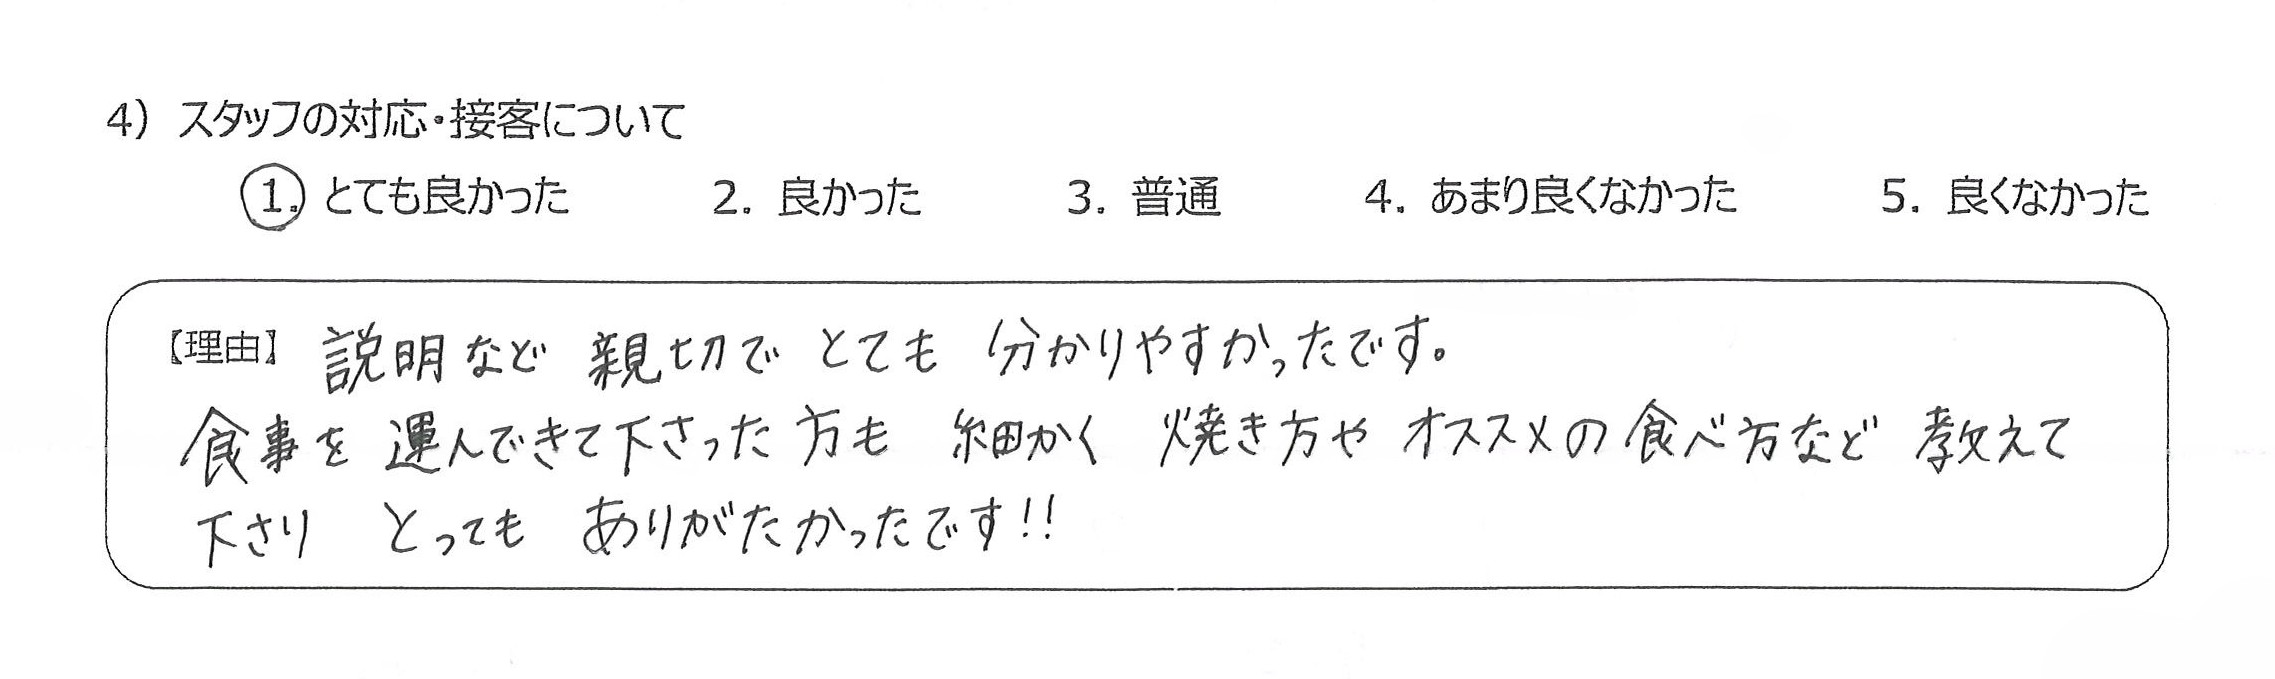 4) スタッフの対応・接客について
1. とても良かった 2. 良かった 3. 普通 4. あまり良くなかった 5. 良くなかった
【理由】 説明など 親切で とても 分かりやすかったです。
食事を 運んできて下さった 方も 細かく 焼き方や オススメの 食べ方など 教えて
下さり とっても ありがたかったです!!